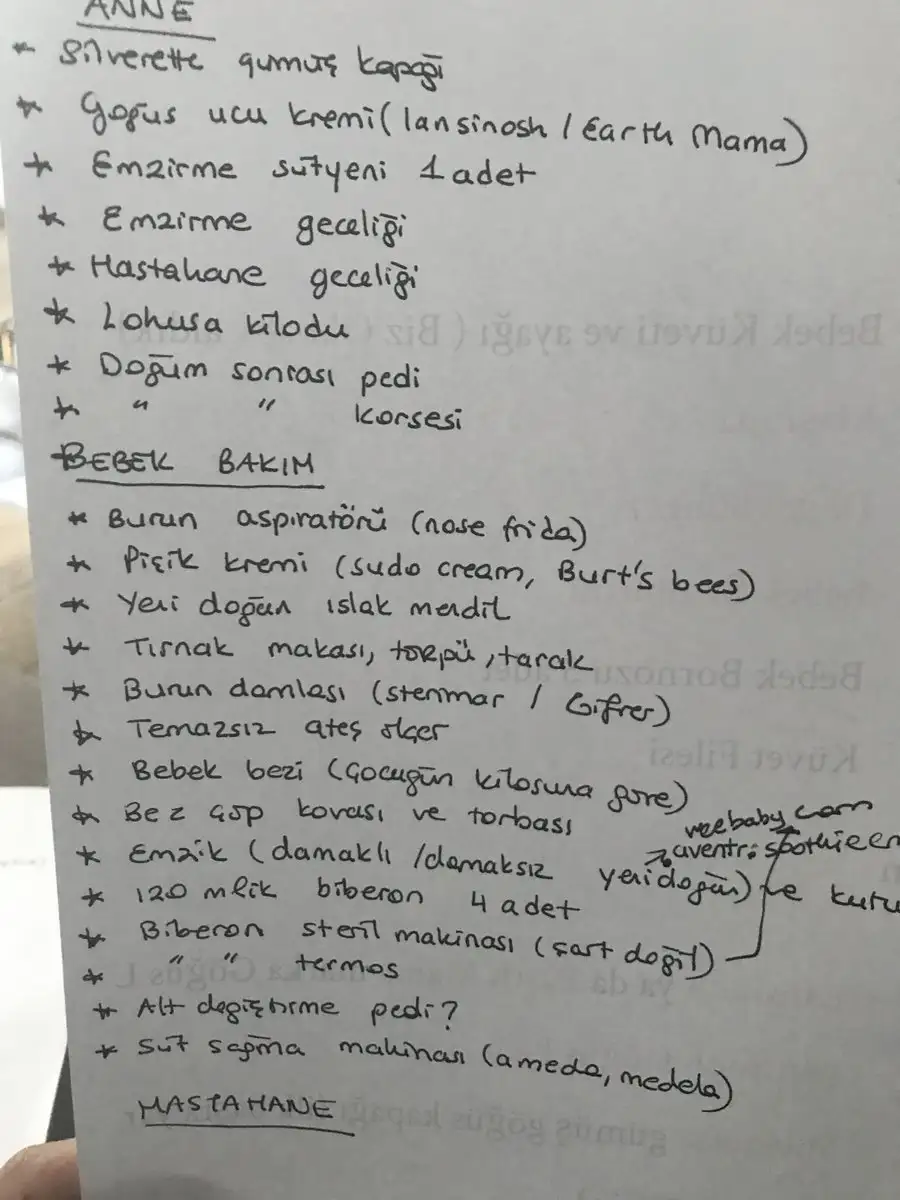 ANNE
* Silverette gumuş kapağı
* Goğus ucu kremi (lansinosh / Earth Mama)
* Emzirme sütyeni 1 adet
* Emzirme geceliği
* Hastahane geceliği
* Lohusa kilodu
* Doğum sonrası pedi
* " " korsesi
BEBEK BAKIM
* Burun aspiratörü (nose frida)
* Pişik kremi (sudo cream, Burt's bees)
* Yeni doğan ıslak mendil
* Tırnak makası, törpü, tarak
* Burun damlası (sterimar / Gifrer)
* Temazsız ateş ölçer
* Bebek bezi (Çocuğun kilosuna göre)
* Bez çöp kovası ve torbası
weebaby com
* Emzik (damaklı /damaksız yeni doğan) ve kutu
* 120 mlik biberon 4 adet
* Biberon steril makinası (şart doğil)
* " " termos
* Alt değiştirme pedi?
* Süt sağma makinası (ameda, medela)
HASTAHANE
Bebek Küveti ve ayağı ( Biz
Bebek Bornozu
Küvet Filesi
ya da
gümüş göğüs kapağı